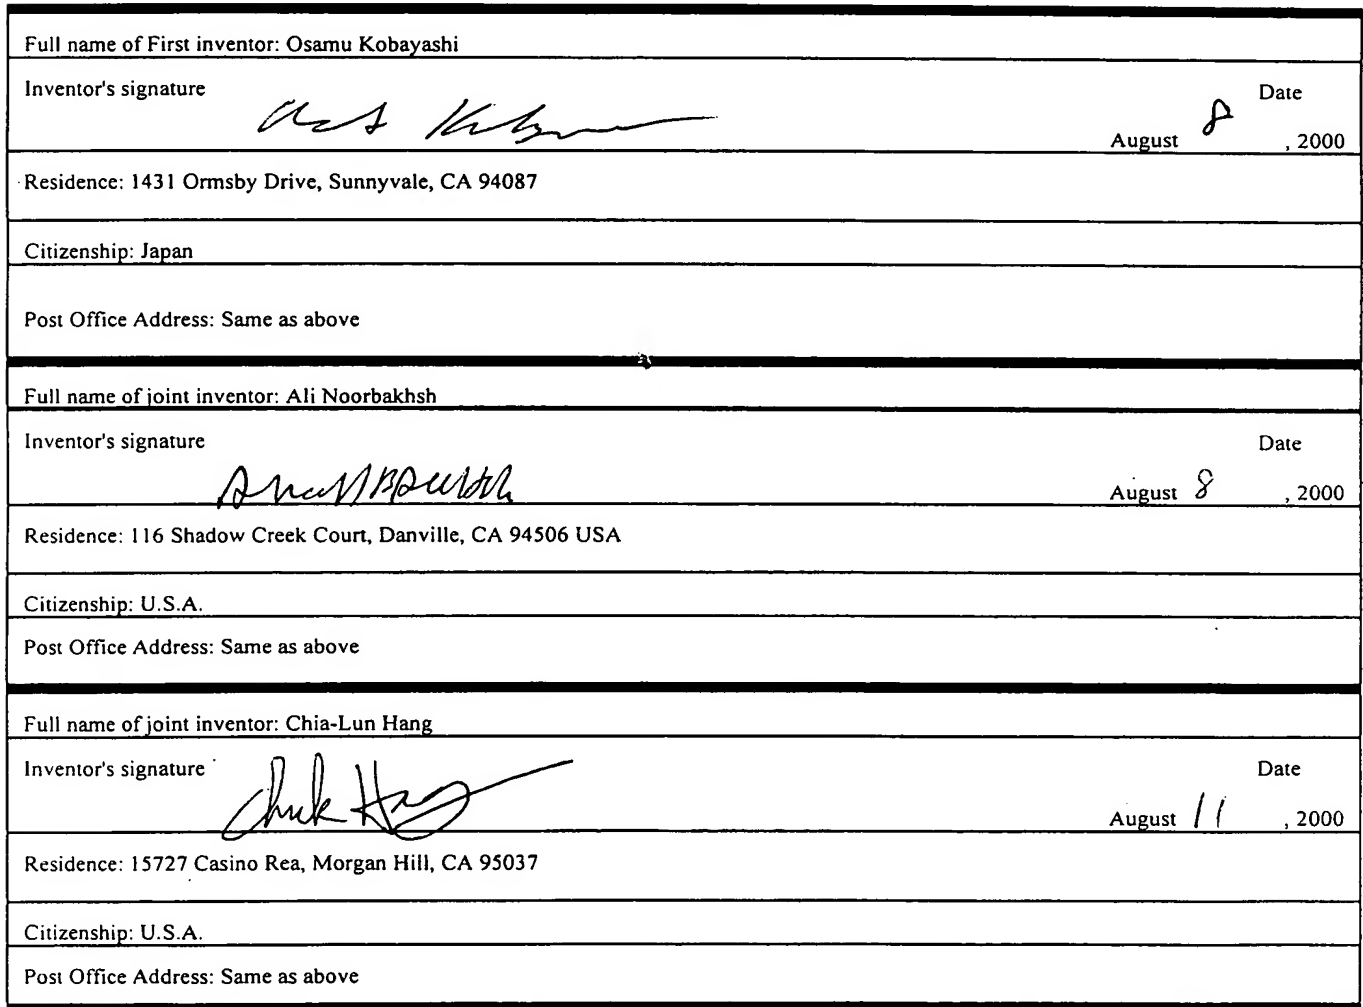 Full name of First inventor: Osamu Kobayashi
Inventor's signature Date
August 8, 2000
Residence: 1431 Ormsby Drive, Sunnyvale, CA 94087
Citizenship: Japan
Post Office Address: Same as above
Full name of joint inventor: Ali Noorbakhsh
Inventor's signature Date
August 8, 2000
Residence: 116 Shadow Creek Court, Danville, CA 94506 USA
Citizenship: U.S.A.
Post Office Address: Same as above
Full name of joint inventor: Chia-Lun Hang
Inventor's signature Date
Chuk Hang
August 11, 2000
Residence: 15727 Casino Rea, Morgan Hill, CA 95037
Citizenship: U.S.A.
Post Office Address: Same as above